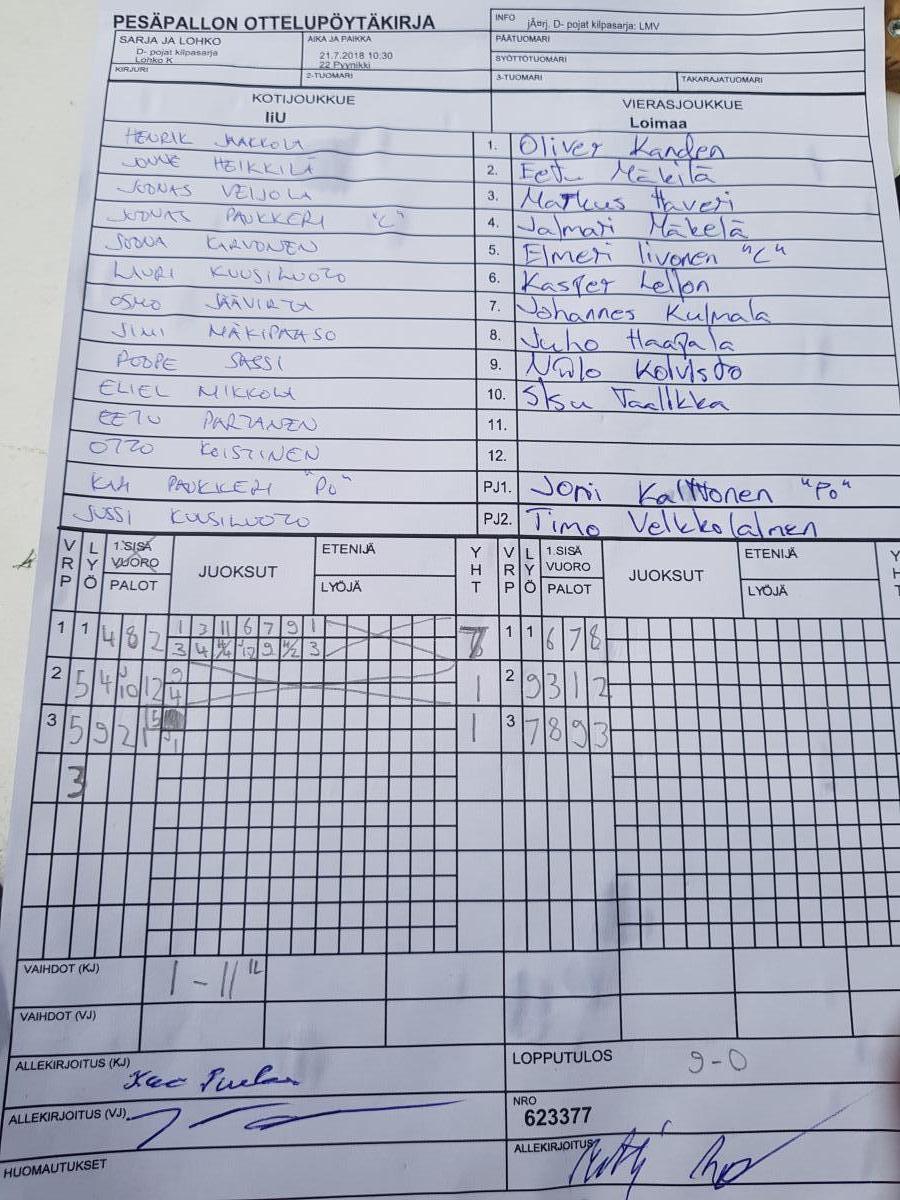 PESÄPALLON OTTELUPÖYTÄKIRJA
INFO jÄ¤rj. D- pojat kilpasarja: LMV
SARJA JA LOHKO
D- pojat kilpasarja
Lohko K
AIKA JA PAIKKA
21.7.2018 10:30
22 Pyynikki
PÄÄTUOMARI
SYÖTTÖTUOMARI
KIRJURI
2-TUOMARI
3-TUOMARI
TAKARAJATUOMARI
KOTIJOUKKUE
IiU
VIERASJOUKKUE
Loimaa
HENRIK JAAKKOLA 1. Oliver Kanden
JONNE HEIKKILÄ 2. Eetu Mäkilä
JOONAS VEIJOLA 3. Markus Haveri
JOONAS PAUKKERI "C" 4. Jalmari Mäkelä
JOONA KARVONEN 5. Elmeri Iivonen "C"
LAURI KUUSILUOTO 6. Kasper Lellon
OSMO JÄÄVIRTA 7. Johannes Kulmala
JIMI MÄKIPAASO 8. Juho Haapala
ROOPE SASSI 9. Niilo Koivisto
ELIEL MIKKOLA 10. Sisu Taalikka
EETU PARTANEN 11.
OTTO KOISTINEN 12.
KAI PAUKKERI "PJ" PJ1. Joni Kalttonen "PJ"
JUSSI KUUSILUOTO PJ2. Timo Veikkolainen
VRP LYÖ 1.SISÄ VUORO PALOT JUOKSUT ETENIJÄ LYÖJÄ YHT VRP LYÖ 1.SISÄ VUORO PALOT JUOKSUT ETENIJÄ LYÖJÄ YHT
1 1 4 8 2 1 3 11 6 7 9 1 7 1 1 6 7 8
3 4 9 3
2 5 4 10 12 9 1 2 9 3 1 2
4
3 5 9 2 1 5 1 3 7 8 9 3
3
VAIHDOT (KJ) 1-11
VAIHDOT (VJ)
ALLEKIRJOITUS (KJ)
LOPPUTULOS 9-0
ALLEKIRJOITUS (VJ)
NRO
623377
HUOMAUTUKSET
ALLEKIRJOITUS